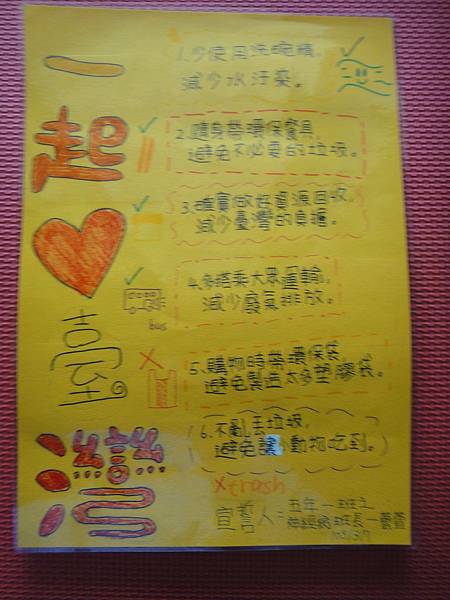 一起❤臺灣
1.少使用洗碗精,
減少水汙染。
2.隨身帶環保餐具,
避免不必要的垃圾。
3.確實做好資源回收,
減少臺灣的負擔。
4.多搭乘大眾運輸,
減少廢氣排放。
bus
5.購物時帶環保袋,
避免製造太多塑膠袋。
6.不亂丟垃圾,
避免讓動物吃到。
xtrash
宣誓人:五年一班之
神經總班長一